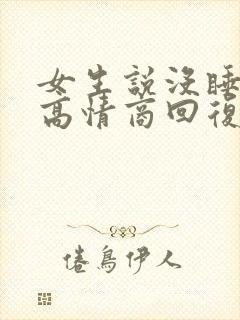 女生說沒睡
高情商回復
倦鳥伊人